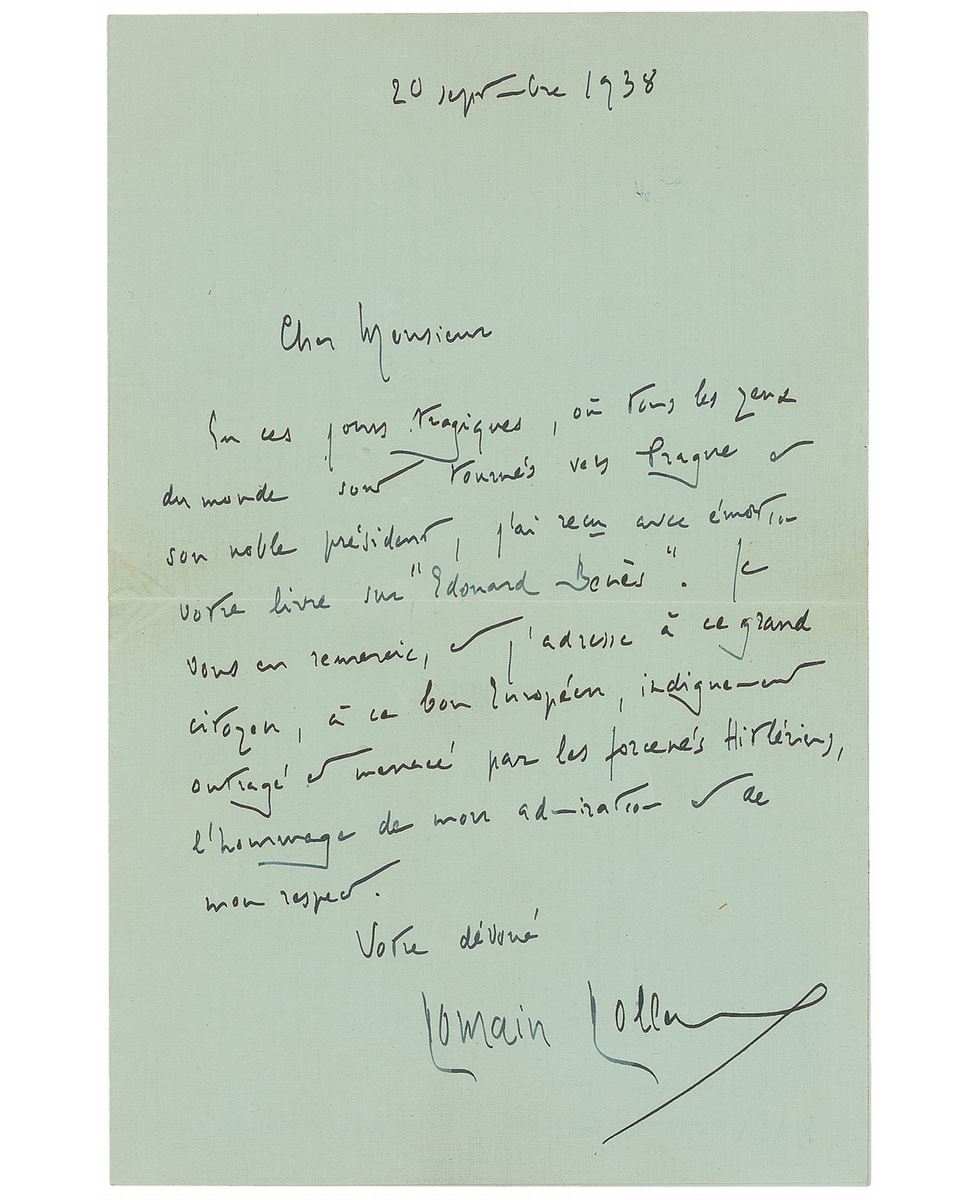 20 septembre 1938
Cher Monsieur
En ces jours tragiques, où tous les yeux
du monde sont tournés vers Prague et
son noble président, j'ai reçu avec émotion
votre livre sur "Edouard Benès". Je
vous en remercie, et j'adresse à ce grand
citoyen, à ce bon Européen, indignement
outragé et menacé par les forcenés Hitlériens,
l'hommage de mon admiration et de
mon respect.
Votre dévoué
Romain Rolland